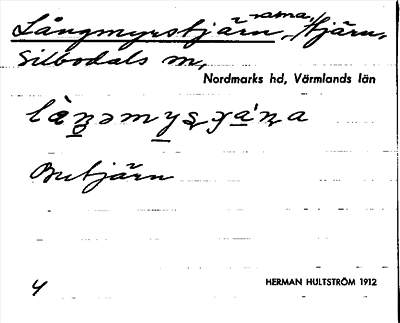 Långmyrstjärn, -arna, tjärn,
Silbodals sn,
Nordmarks hd, Värmlands län
Butjärn
4
HERMAN HULTSTRÖM 1912